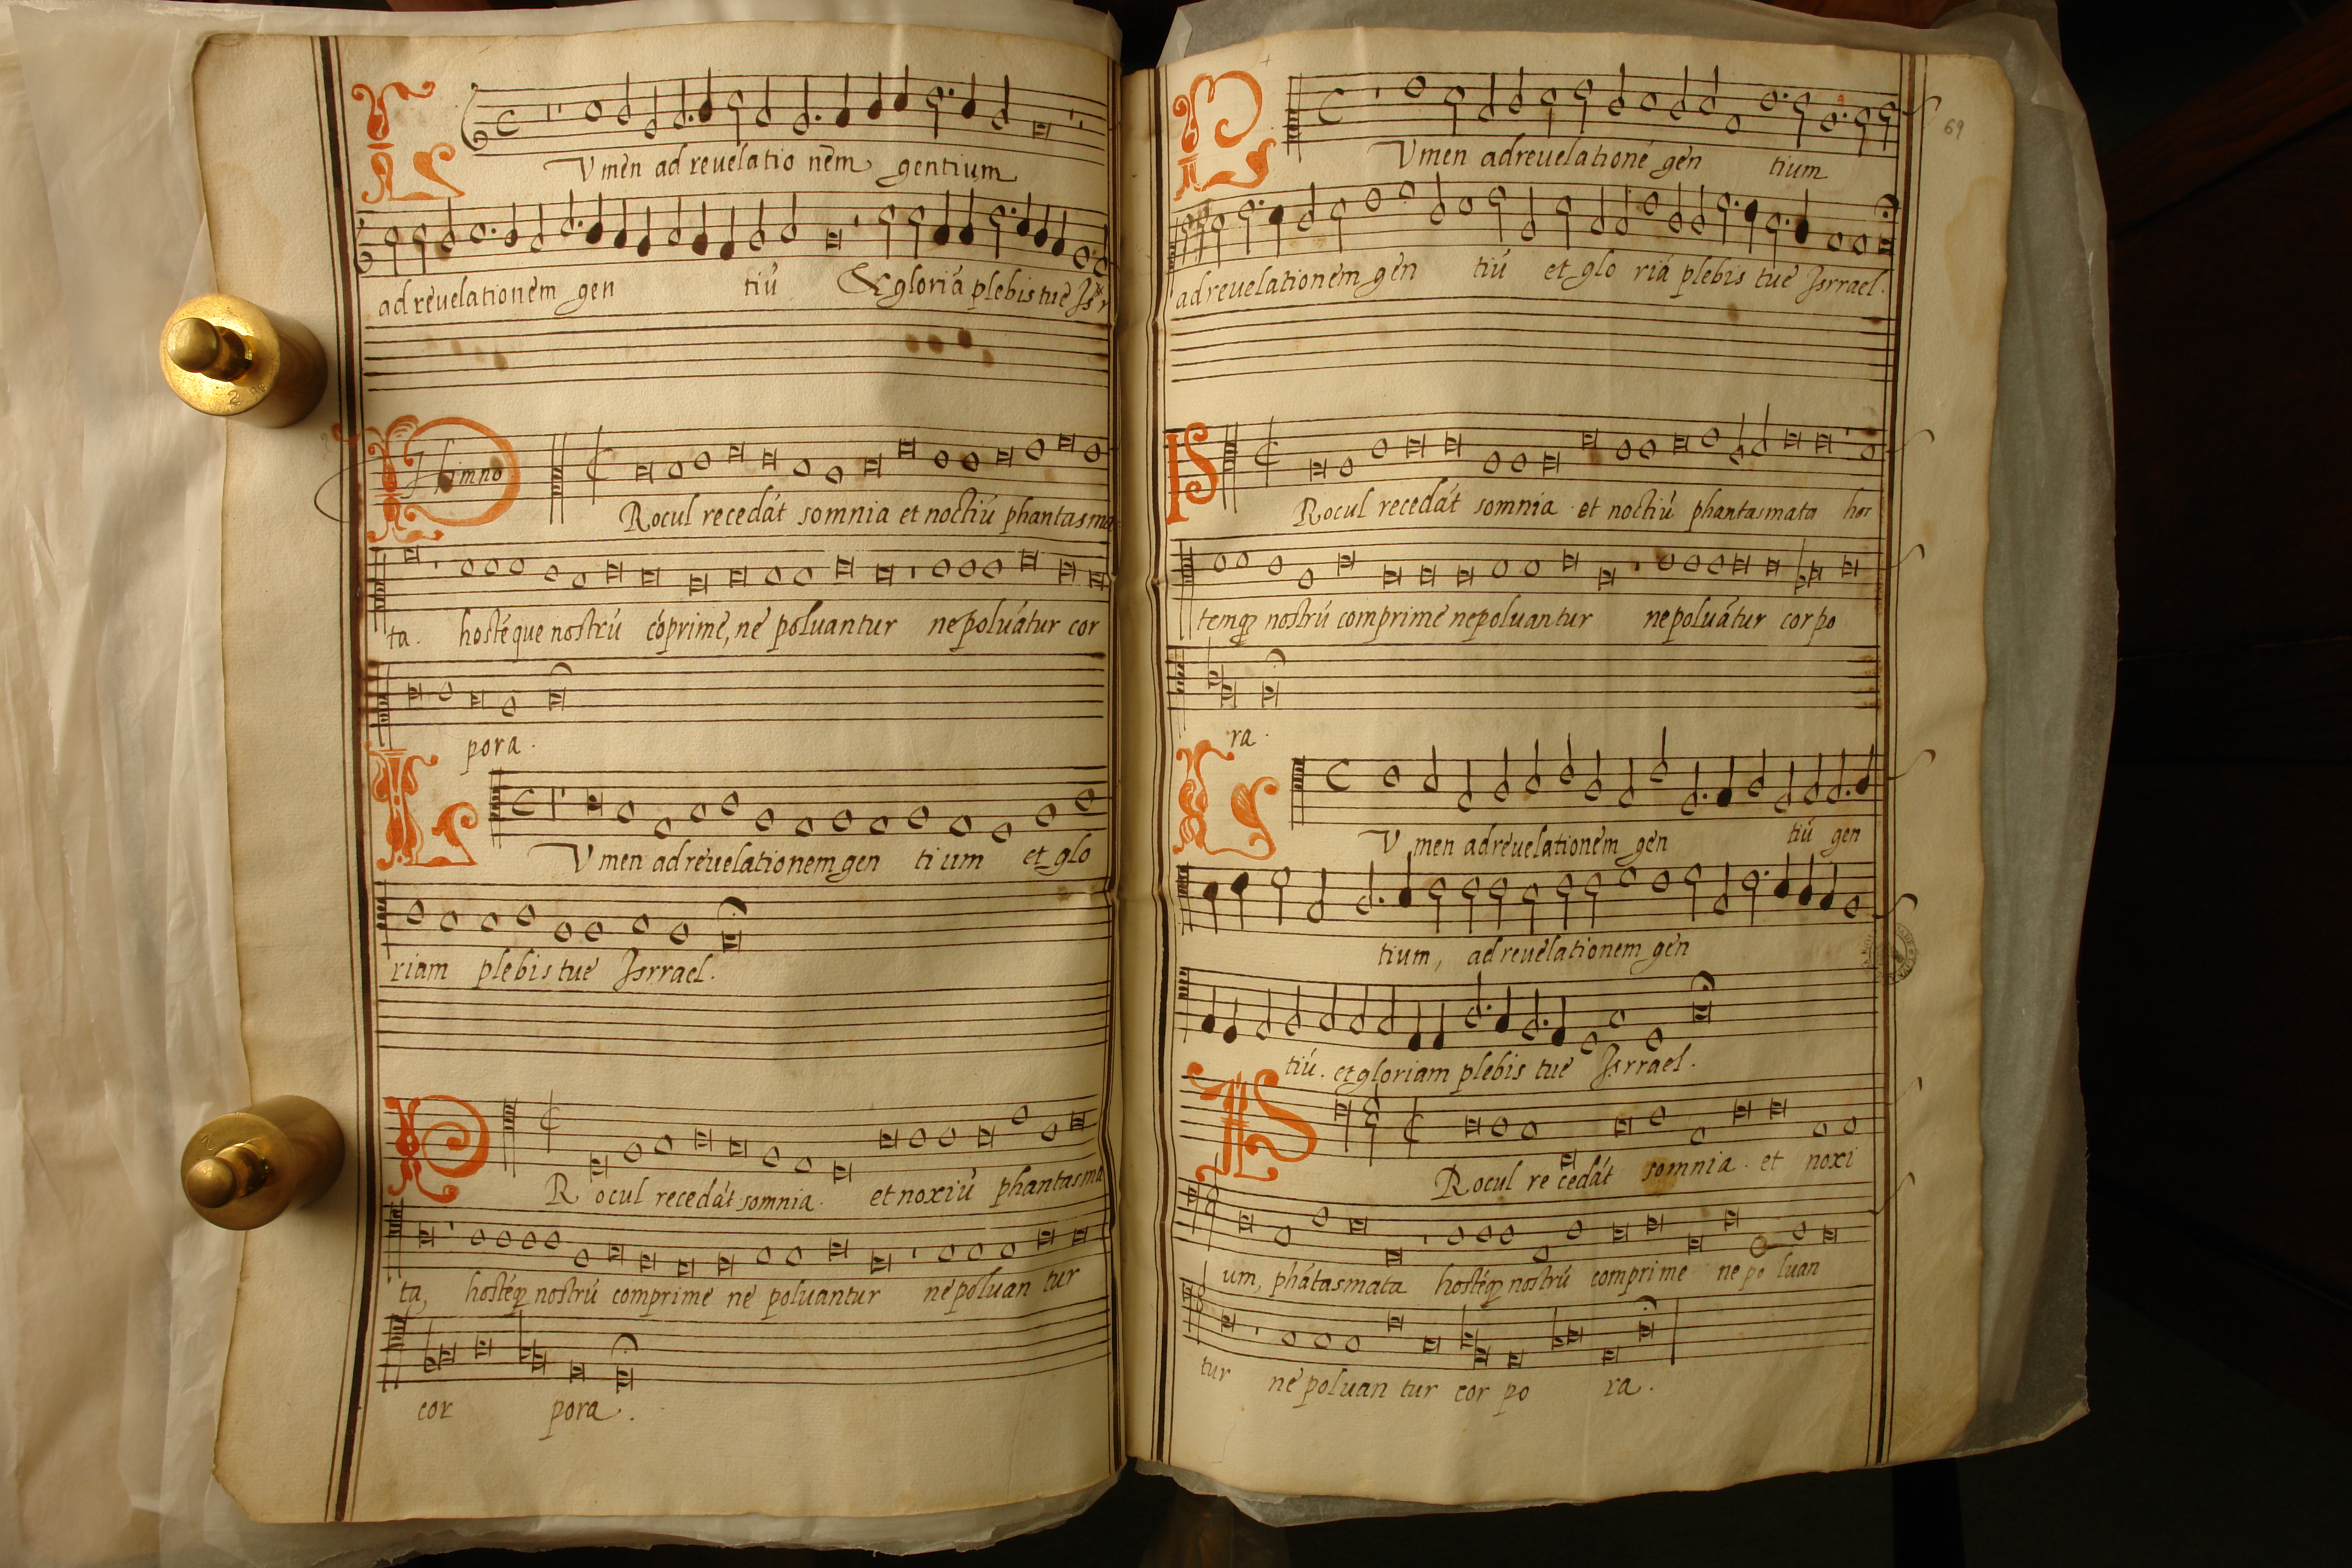 L Vmen ad reuelatio nem gentium
ad reuelationem gen tiũ & gloriã plebis tue Isr
Himno
P Rocul recedãt somnia et noctiũ phantasma
ta. hostẽque nostrũ cõprime, ne poluantur ne poluãtur cor
pora.
L Vmen ad reuelationem gen tium et glo
riam plebis tue Isrrael.
P Rocul recedãt somnia. et noxiũ phantasma
ta, hostẽqꝫ nostrũ comprime ne poluantur ne poluan tur
cor pora.
69
L Vmen ad reuelationẽ gen tium
ad reuelationem gen tiũ et glo riã plebis tue Isrrael.
P Rocul recedãt somnia et noctiũ phantasmata hos
temqꝫ nostrũ comprime ne poluantur ne poluãtur corpo
ra.
L Vmen ad reuelationem gen tiũ gen
tium, ad reuelationem gen
tiũ. et gloriam plebis tue Isrrael.
P Rocul re cedãt somnia. et noxi
um, phãtasmata hostẽqꝫ nostrũ comprime ne po luan
tur ne poluan tur cor po ra.